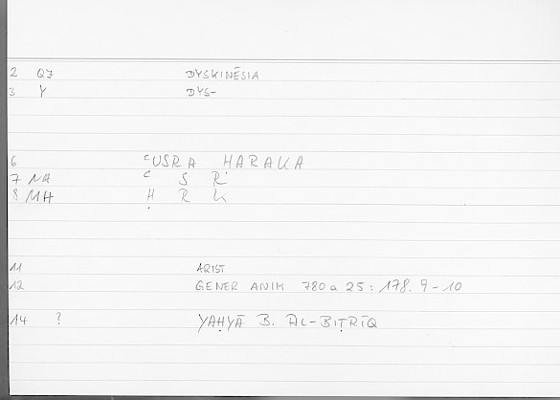 2 QJ DYSKINĒSIA
3 Y DYS-
6 ʿUSRA HARAKA
7 NA ʿ S R
8 MH Ḥ R K
11 ARIST
12 GENER ANIM 780 a 25 : 178. 9 - 10
14 ? YAḤYĀ B. AL-BIṬRĪQ